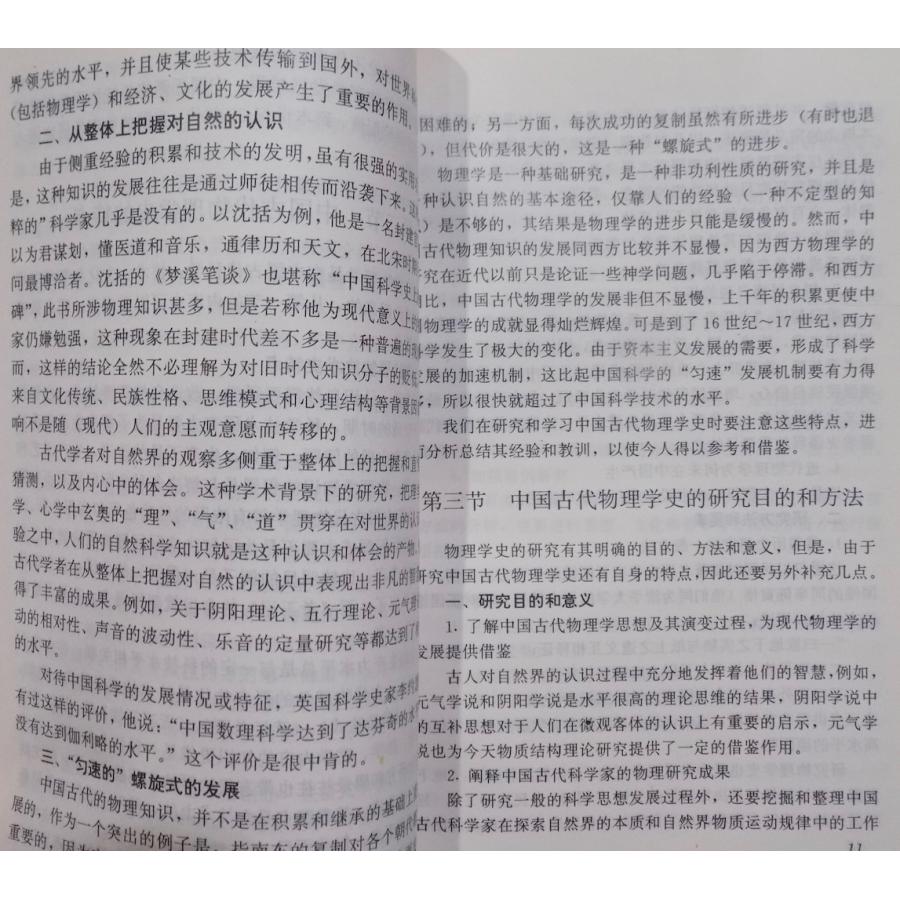 界领先的水平，并且使某些技术传输到国外，对世界
(包括物理学）和经济、文化的发展产生了重要的作用，
二、从整体上把握对自然的认识
由于侧重经验的积累和技术的发明，虽有很强的实用
是，这种知识的发展往往是通过师徒相传而沿袭下来。
粹的”科学家几乎是没有的。以沈括为例，他是一名封建
以为君谋划，懂医道和音乐，通律历和天文，在北宋时期
问最博洽者。沈括的《梦溪笔谈》也堪称“中国科学史上
碑”，此书所涉物理知识甚多，但是若称他为现代意义上的
家仍嫌勉强，这种现象在封建时代差不多是一种普遍的
而，这样的结论全然不必理解为对旧时代知识分子的贬低
来自文化传统、民族性格、思维模式和心理结构等背景因
响不是随（现代）人们的主观意愿而转移的。
古代学者对自然界的观察多侧重于整体上的把握和直
猜测，以及内心中的体会。这种学术背景下的研究，把理
学、心学中玄奥的“理”、“气”、“道”贯穿在对世界的认
验之中，人们的自然科学知识就是这种认识和体会的产物。
古代学者在从整体上把握对自然的认识中表现出非凡的智
得了丰富的成果。例如，关于阴阳理论、五行理论、元气理
动的相对性、声音的波动性、乐音的定量研究等都达到了
的水平。
对待中国科学的发展情况或特征，英国科学史家李约
有过这样的评价，他说：“中国数理科学达到了达芬奇的水
没有达到伽利略的水平。”这个评价是很中肯的。
三、“匀速的”螺旋式的发展
中国古代的物理知识，并不是在积累和继承的基础上
展的，作为一个突出的例子是：指南车的复制对各个朝代
重要的，因为
困难的；另一方面，每次成功的复制虽然有所进步（有时也退
），但代价是很大的，这是一种“螺旋式”的进步。
物理学是一种基础研究，是一种非功利性质的研究，并且是
种认识自然的基本途径，仅靠人们的经验（一种不定型的知
）是不够的，其结果是物理学的进步只能是缓慢的。然而，中
古代物理知识的发展同西方比较并不显慢，因为西方物理学的
究在近代以前只是论证一些神学问题，几乎陷于停滞。和西方
比，中国古代物理学的发展非但不显慢，上千年的积累更使中
物理学的成就显得灿烂辉煌。可是到了16世纪～17世纪，西方
学发生了极大的变化。由于资本主义发展的需要，形成了科学
发展的加速机制，这比起中国科学的“匀速”发展机制要有力得
，所以很快就超过了中国科学技术的水平。
我们在研究和学习中国古代物理学史时要注意这些特点，进
而分析总结其经验和教训，以使今人得以参考和借鉴。
第三节 中国古代物理学史的研究目的和方法
物理学史的研究有其明确的目的、方法和意义，但是，由于
研究中国古代物理学史还有自身的特点，因此还要另外补充几点。
一、研究目的和意义
1. 了解中国古代物理学思想及其演变过程，为现代物理学的
发展提供借鉴
古人对自然界的认识过程中充分地发挥着他们的智慧，例如，
元气学说和阴阳学说是水平很高的理论思维的结果，阴阳学说中
的互补思想对于人们在微观客体的认识上有重要的启示，元气学
说也为今天物质结构理论研究提供了一定的借鉴作用。
2. 阐释中国古代科学家的物理研究成果
除了研究一般的科学思想发展过程外，还要挖掘和整理中国
古代科学家在探索自然界的本质和自然界物质运动规律中的工作
11